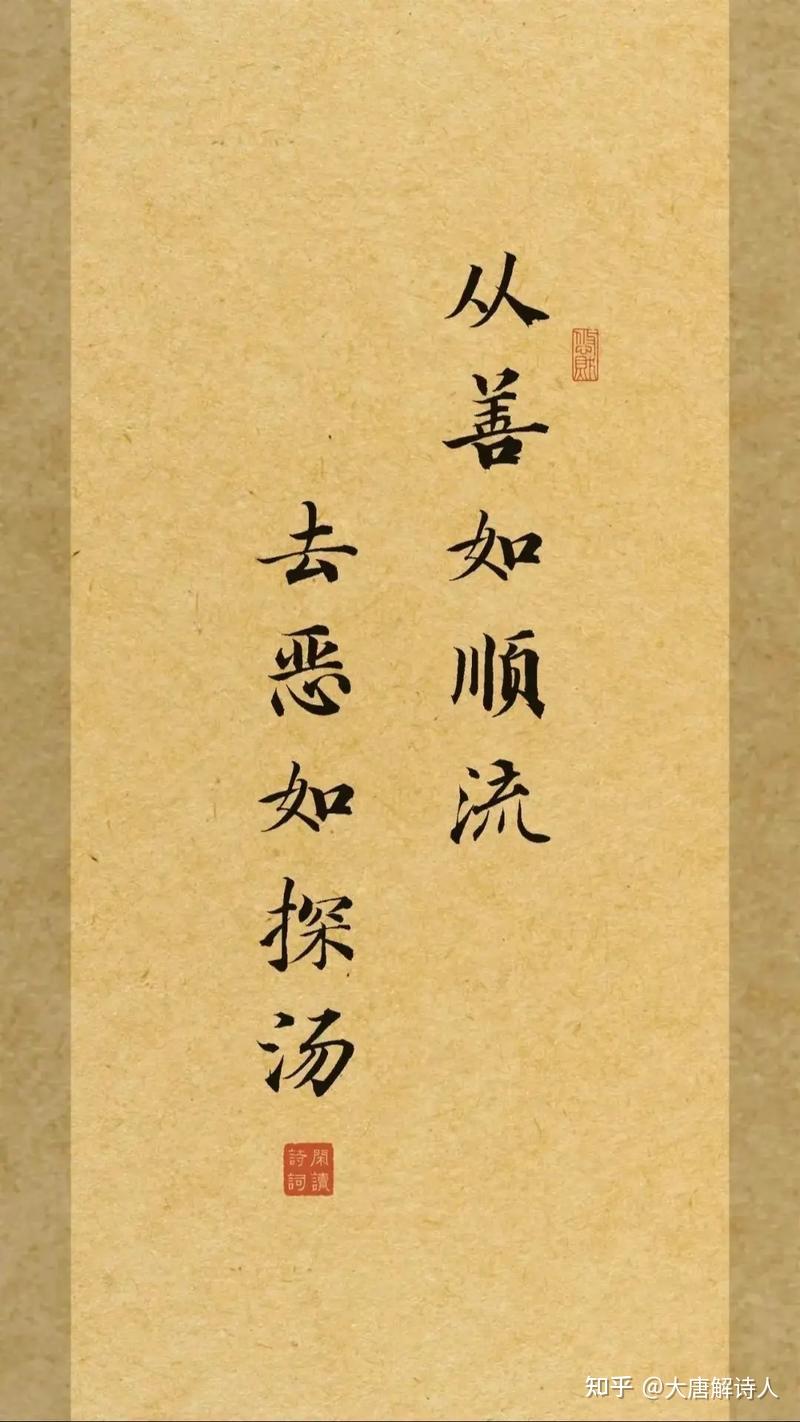 从善如顺流
去恶如探汤
閑讀詩詞
知乎 @大唐解诗人